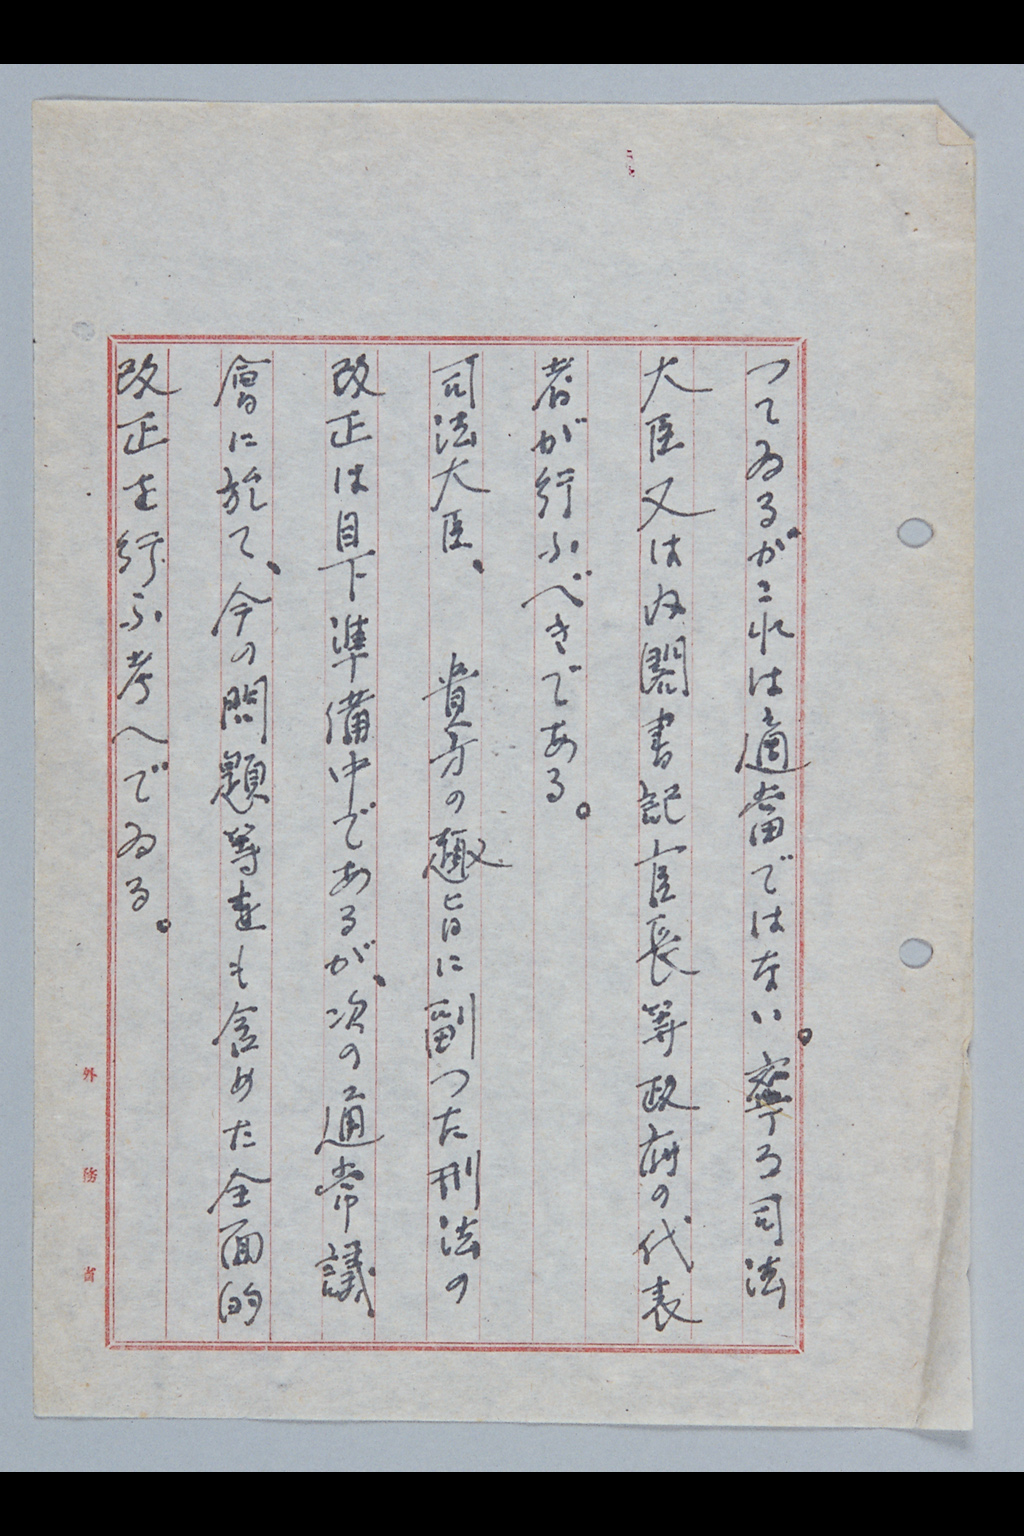 つてゐるがこれは適當ではない。寧ろ司法
大臣又は内閣書記官長等政府の代表
者が行ふべきである。
司法大臣、 貴方の趣旨に副つた刑法の
改正は目下準備中であるが、次の通常議
會に於て、今の問題等をも含めた全面的
改正を行ふ考へでゐる。
外務省